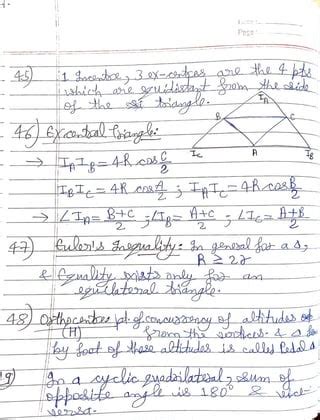 45) 1 Incentre, 3 ex-centres are the 4 pts
which are equidistant from the side
of the triangle.
46) Excentral Triangle:
I_A
B
C
I_C
A
I_B
→ I_A I_B = 4R cos C/2
I_B I_C = 4R cos A/2 ; I_A I_C = 4R cos B/2
→ ∠I_A = B+C/2 ; ∠I_B = A+C/2 ; ∠I_C = A+B/2
47) Euler's Inequality: In general for a Δ,
R ≥ 2r
& Equality exists only for an
equilateral triangle.
48) Orthocentre pt. of concurrency of altitudes
(H) from the vertices. & a Δ
by foot of these altitudes is called Pedal Δ
9) In a cyclic quadrilateral, sum of
opposite angle is 180° & vice
versa.